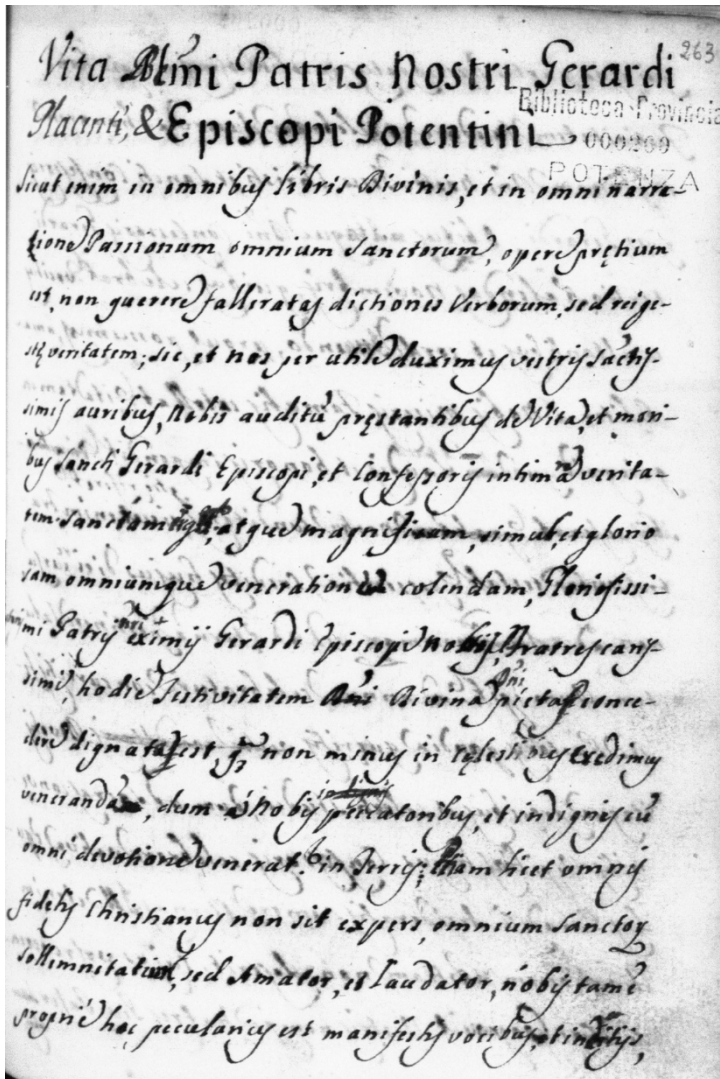 263
Vita Btmi Patris Nostri Gerardi
Placenti, & Episcopi Potentini
Biblioteca Provincia
000200
POTENZA
sicut enim in omnibus libris Divinis, et in omni narra-
tione Passionum omnium Sanctorum, opere prętium
est, non querere falleratas dictiones Verborum, sed reige-
stę veritatem; sic, et nos per utile duximus vestris sãctis-
simis auribus, Nobis auditũ pręstantibus de Vita, et mori-
bus Sancti Gerardi Episcopi, et Confessoris intima verita-
tem sanctam atque magnificam, simul, et glorio
sam omniumque veneratione colendam, Gloriosissi-
mi Patris nri eximij Gerardi Episcopi Nobis, Fratres caris-
simi, hodie festivitatem Dni Divina pietas conce-
dere dignata est, q non minus in cęlestibus credimus
venerandã, dum á Nobis peccatoribus, et indignis cũ
omni devotione venerat. in terris; Etiam licet omnis
fidelis Christianus non sit expers, omnium Sanctoꝝ
sollemnitatum, sed Amator, et laudator, nobis tamẽ
proprie hoc peculariũs est manifestis vocibus, et